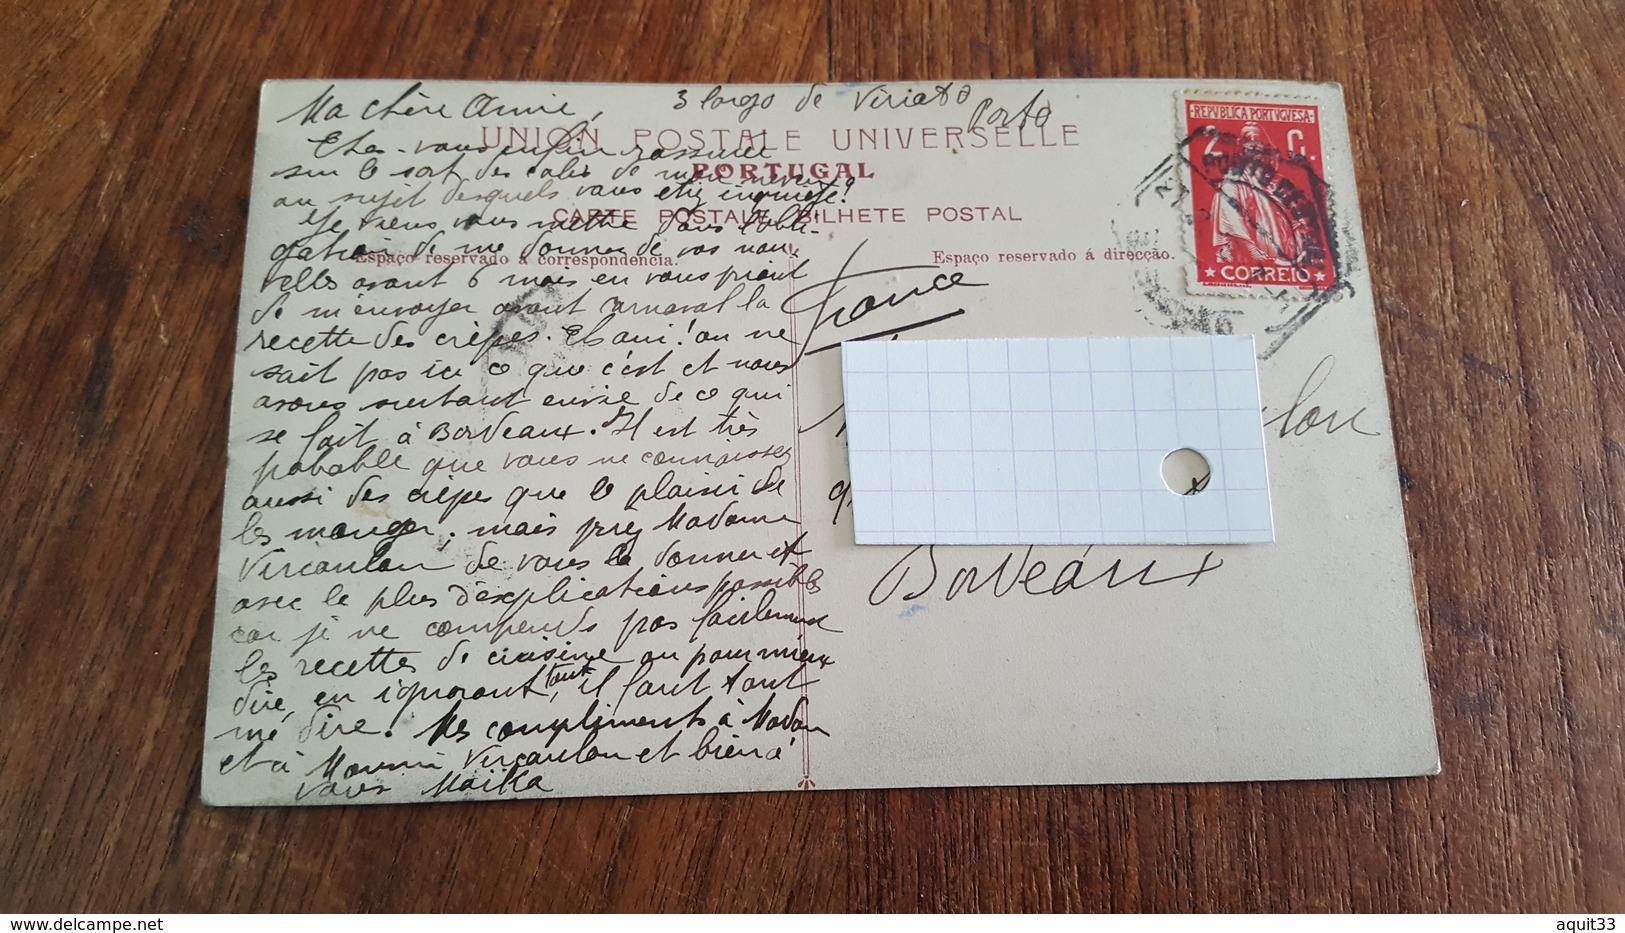 Ma chère Annie, 3 largo de Viriato Porto
UNION POSTALE UNIVERSELLE
PORTUGAL
CARTE POSTALE BILHETE POSTAL
Espaço reservado á correspondencia.
Espaço reservado á direcção.
REPVBLICA PORTVGVESA
2 C.
CORREIO
Etes-vous enfin rassurée
sur le sort des colis de mon
au sujet desquels vous etiez inquiète?
Je viens vous mettre dans l'obli-
gation de me donner de vos nou-
velles avant 6 mois en vous priant
de m'envoyer avant carnaval la
recette des crêpes. Eh oui! on ne
sait pas ici ce que c'est et nous
avons surtout envie de ce qui
se fait à Bordeaux. Il est très
probable que vous ne connaissez
aussi des crêpes que le plaisir de
les manger; mais priez Madame
Vircoulon de vous la donner et
avec le plus d'explications possibles
car je ne comprends pas facilement
les recettes de cuisine ou pour mieux
dire, en ignorant tout, il faut tout
me dire. Mes compliments à Madame
et à Vircoulon et bien à
vous Maïka
France
lon
Bordeaux
aquit33